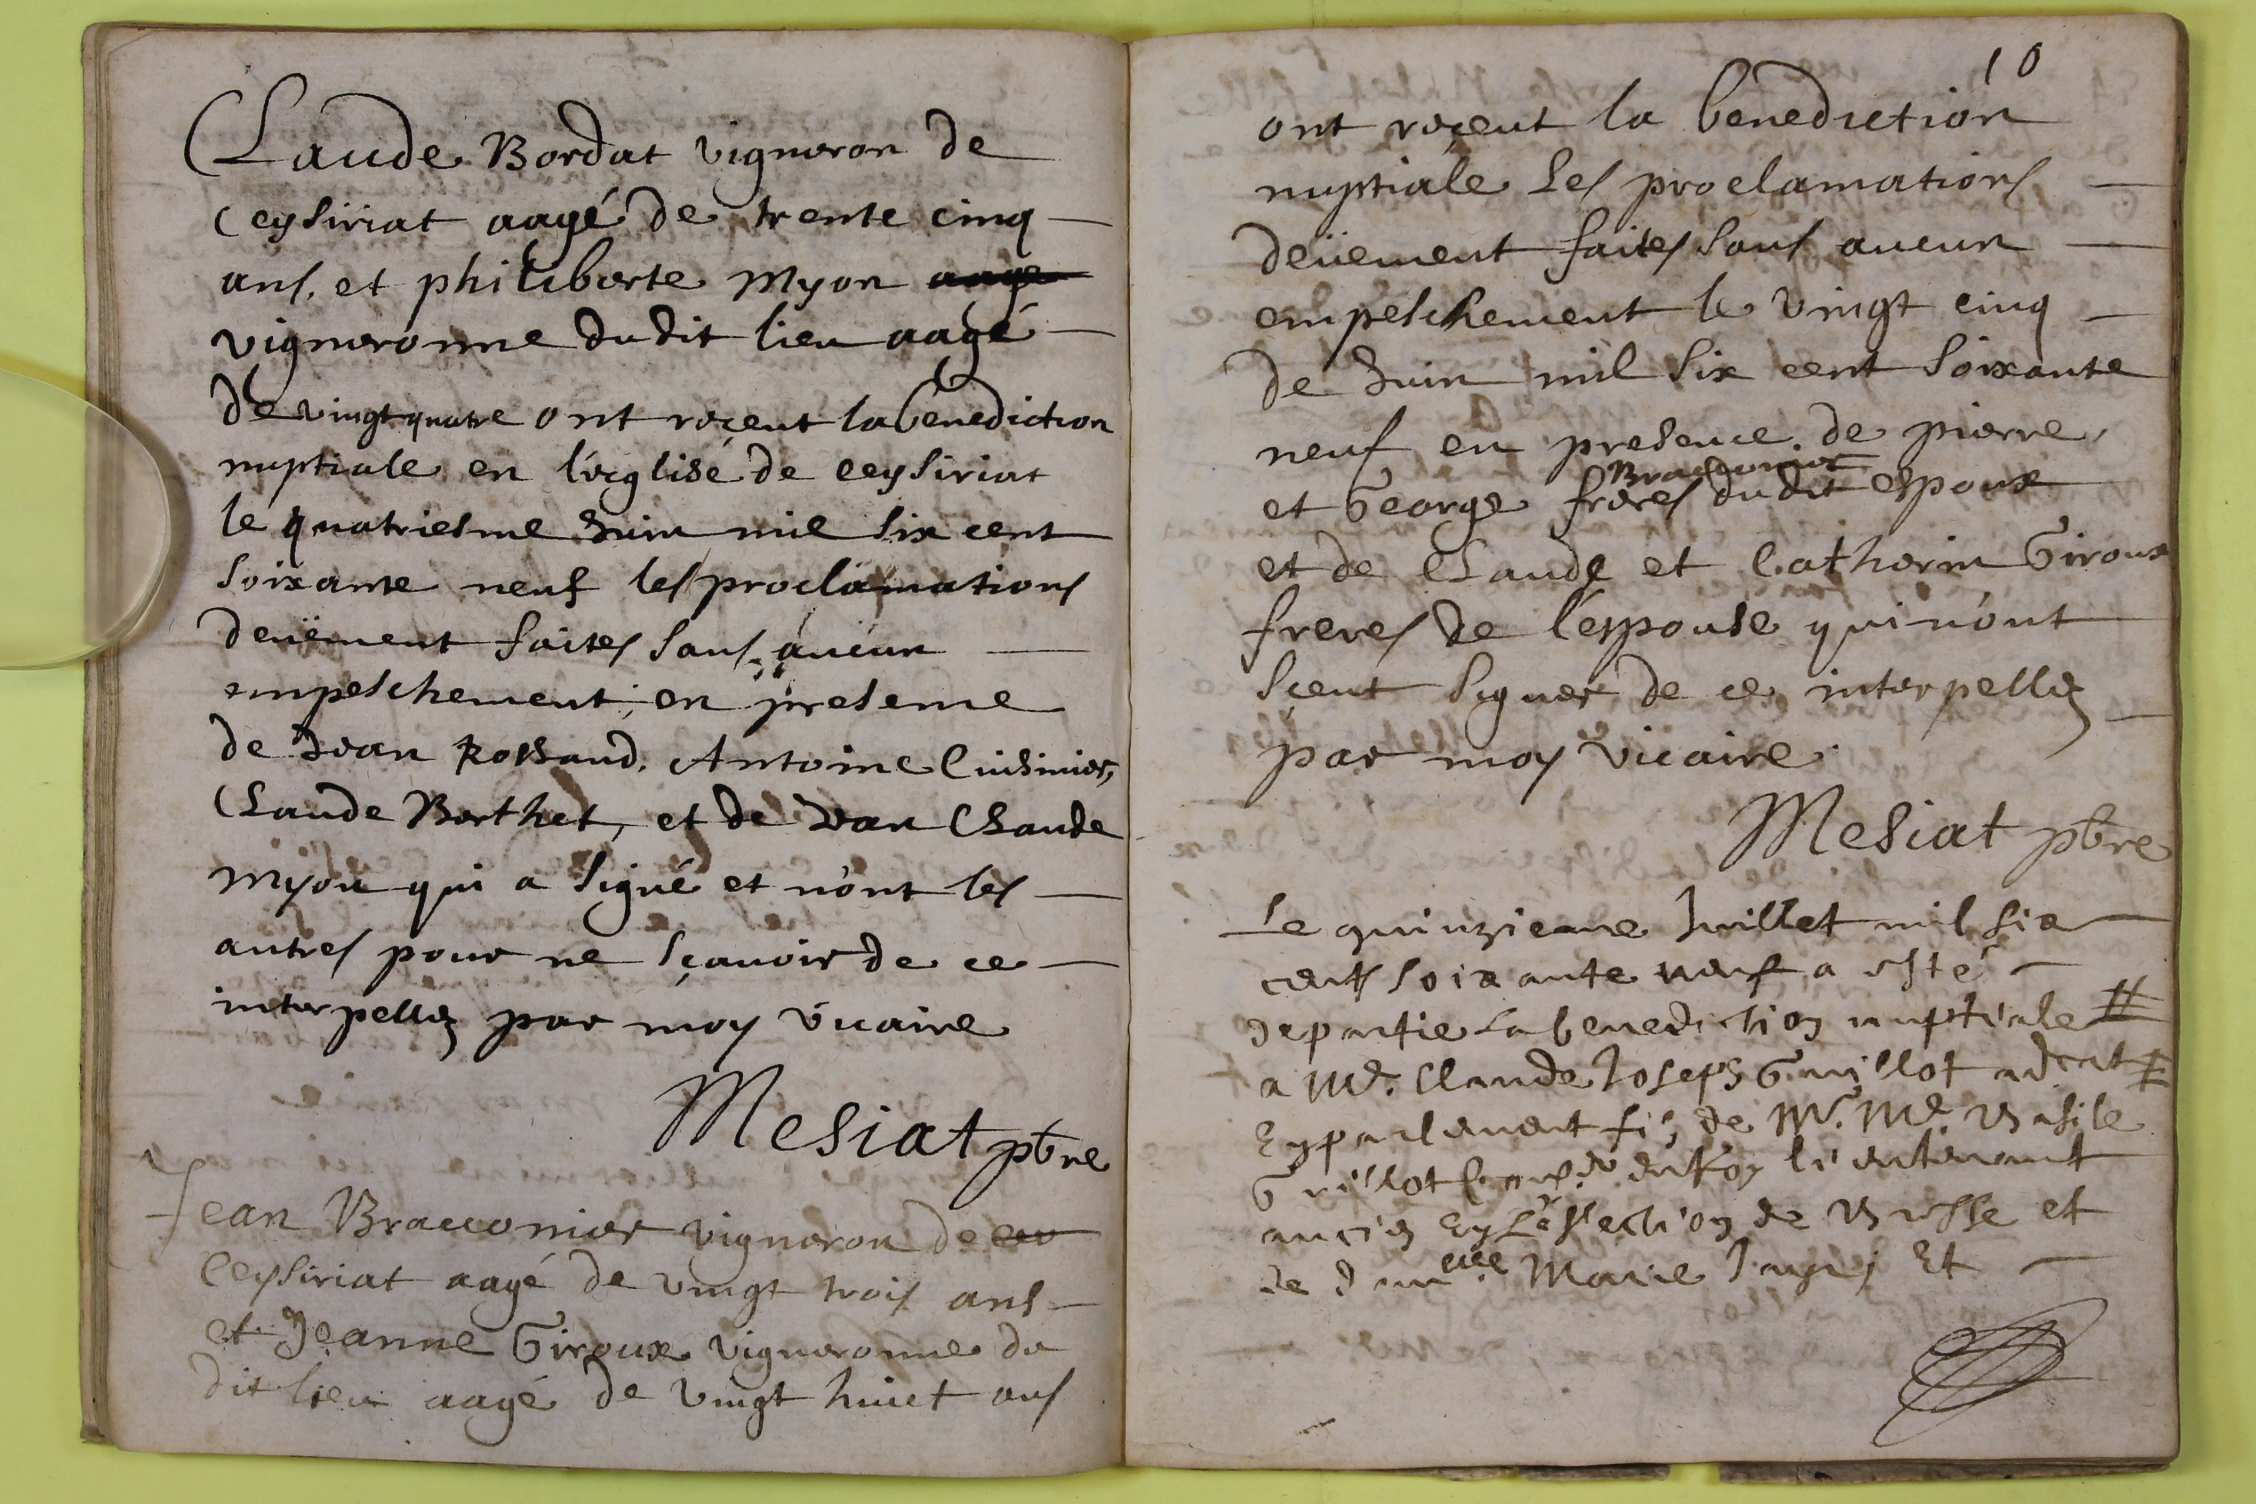 Claude Bordat vigneron de
Ceysiriat aagé de trente cinq
ans. et philiberte Myon aage
vigneronne dudit lieu aagé
de vingt quatre ont reçeut la bénédiction
nuptiale en l'éeglise de ceysiriat
le quatriesme Juin mil six cent
soixante neuf les proclamations
deüement faites sans aucun
empeschement, en presence
de Jean Rossand, Antoine Cuisinier,
Claude Berthet, et de Jean Claude
Myon qui a signé et n'ont les
autres pour ne sçavoir de ce
interpellez par moy vicaire
Mesiat pbre
Jean Bracconier vigneron de cey
Ceysiriat aagé de vingt trois ans
et Jeanne Giroux vigneronne du
dit lieu aagé de vingt huict ans
10
ont reçeut la benediction
nuptiale les proclamations
deüement faites sans aucun
empeschement le vingt cinq
de Juin mil six cent soixante
neuf en presence de pierre
Bracconier
et George freres dudit espoux
et de Claude et Catherin Giroux
freres de l'espouse qui n'ont
sçeut signer de ce interpellez
par moy vicaire
Mesiat pbre
Le quinzieme Juillet mil six
cents soixante neuf a esté
departie La benediction nuptiale #
a Me. Claude Joseph Guillot advcat #
En parlement fis de Mr. Me. Basile
Guillot du Roy lieutenant
ancien En L'eslection de Bresse et
de Marie Et